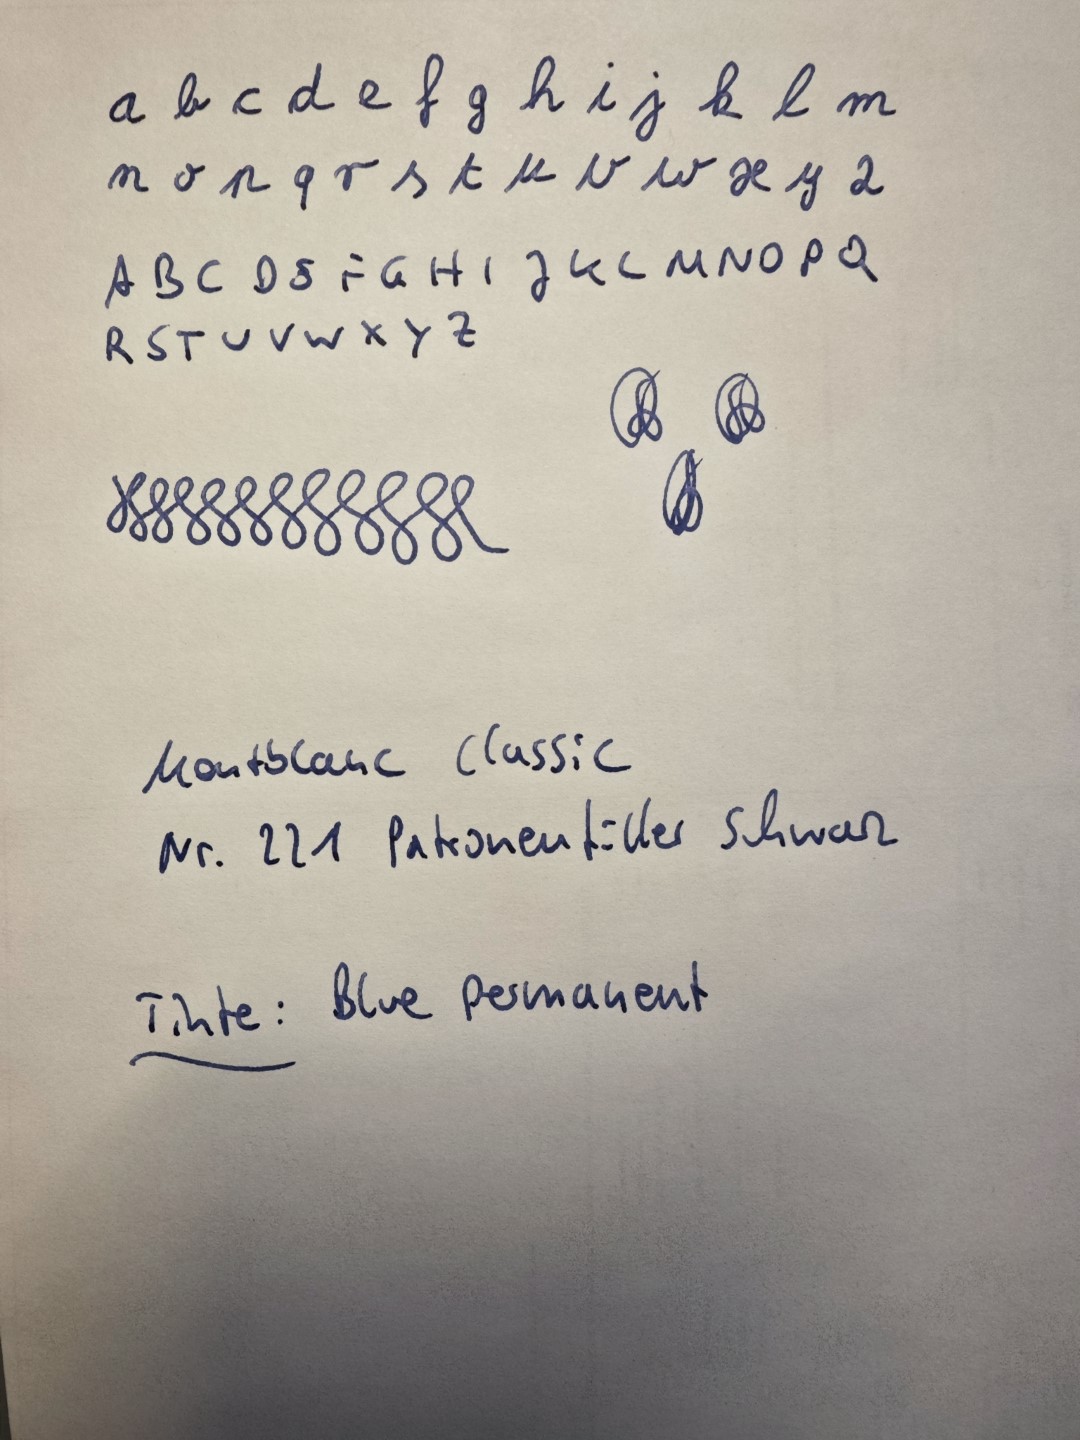 a b c d e f g h i j k l m
n o p q r s t u v w x y z
A B C D E F G H I J K L M N O P Q
R S T U V W X Y Z
Montblanc Classic
Nr. 221 Patronenfüller Schwarz
Tinte: Blue permanent